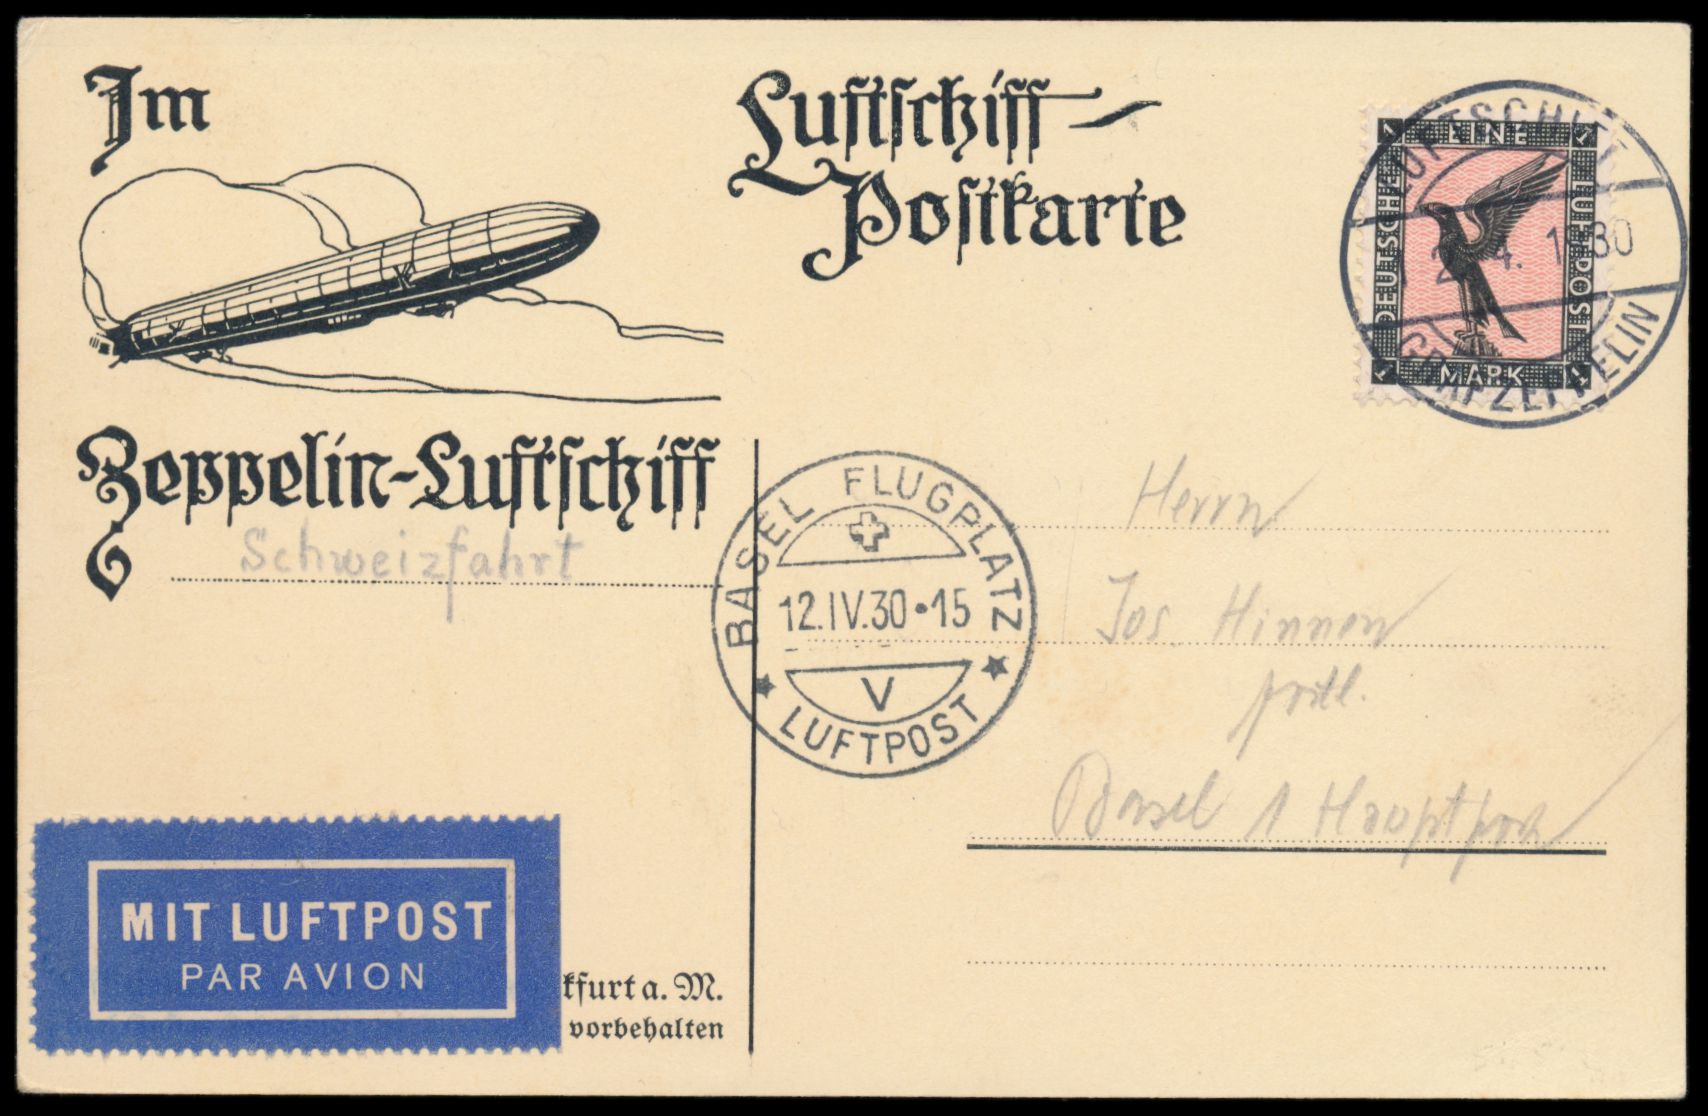 Im
Luftschiff-
Postkarte
Zeppelin-Luftschiff
Schweizfahrt
1 EINE 1
DEUTSCHE
LUFTPOST
1 MARK 1
LUFTSCHIFF
4. 1930
GRAF ZEPPELIN
BASEL FLUGPLATZ
12.IV.30·15
V
LUFTPOST
Herrn
Jos Hinnen
Basel 1 Hauptpost
MIT LUFTPOST
PAR AVION
kfurt a. M.
vorbehalten